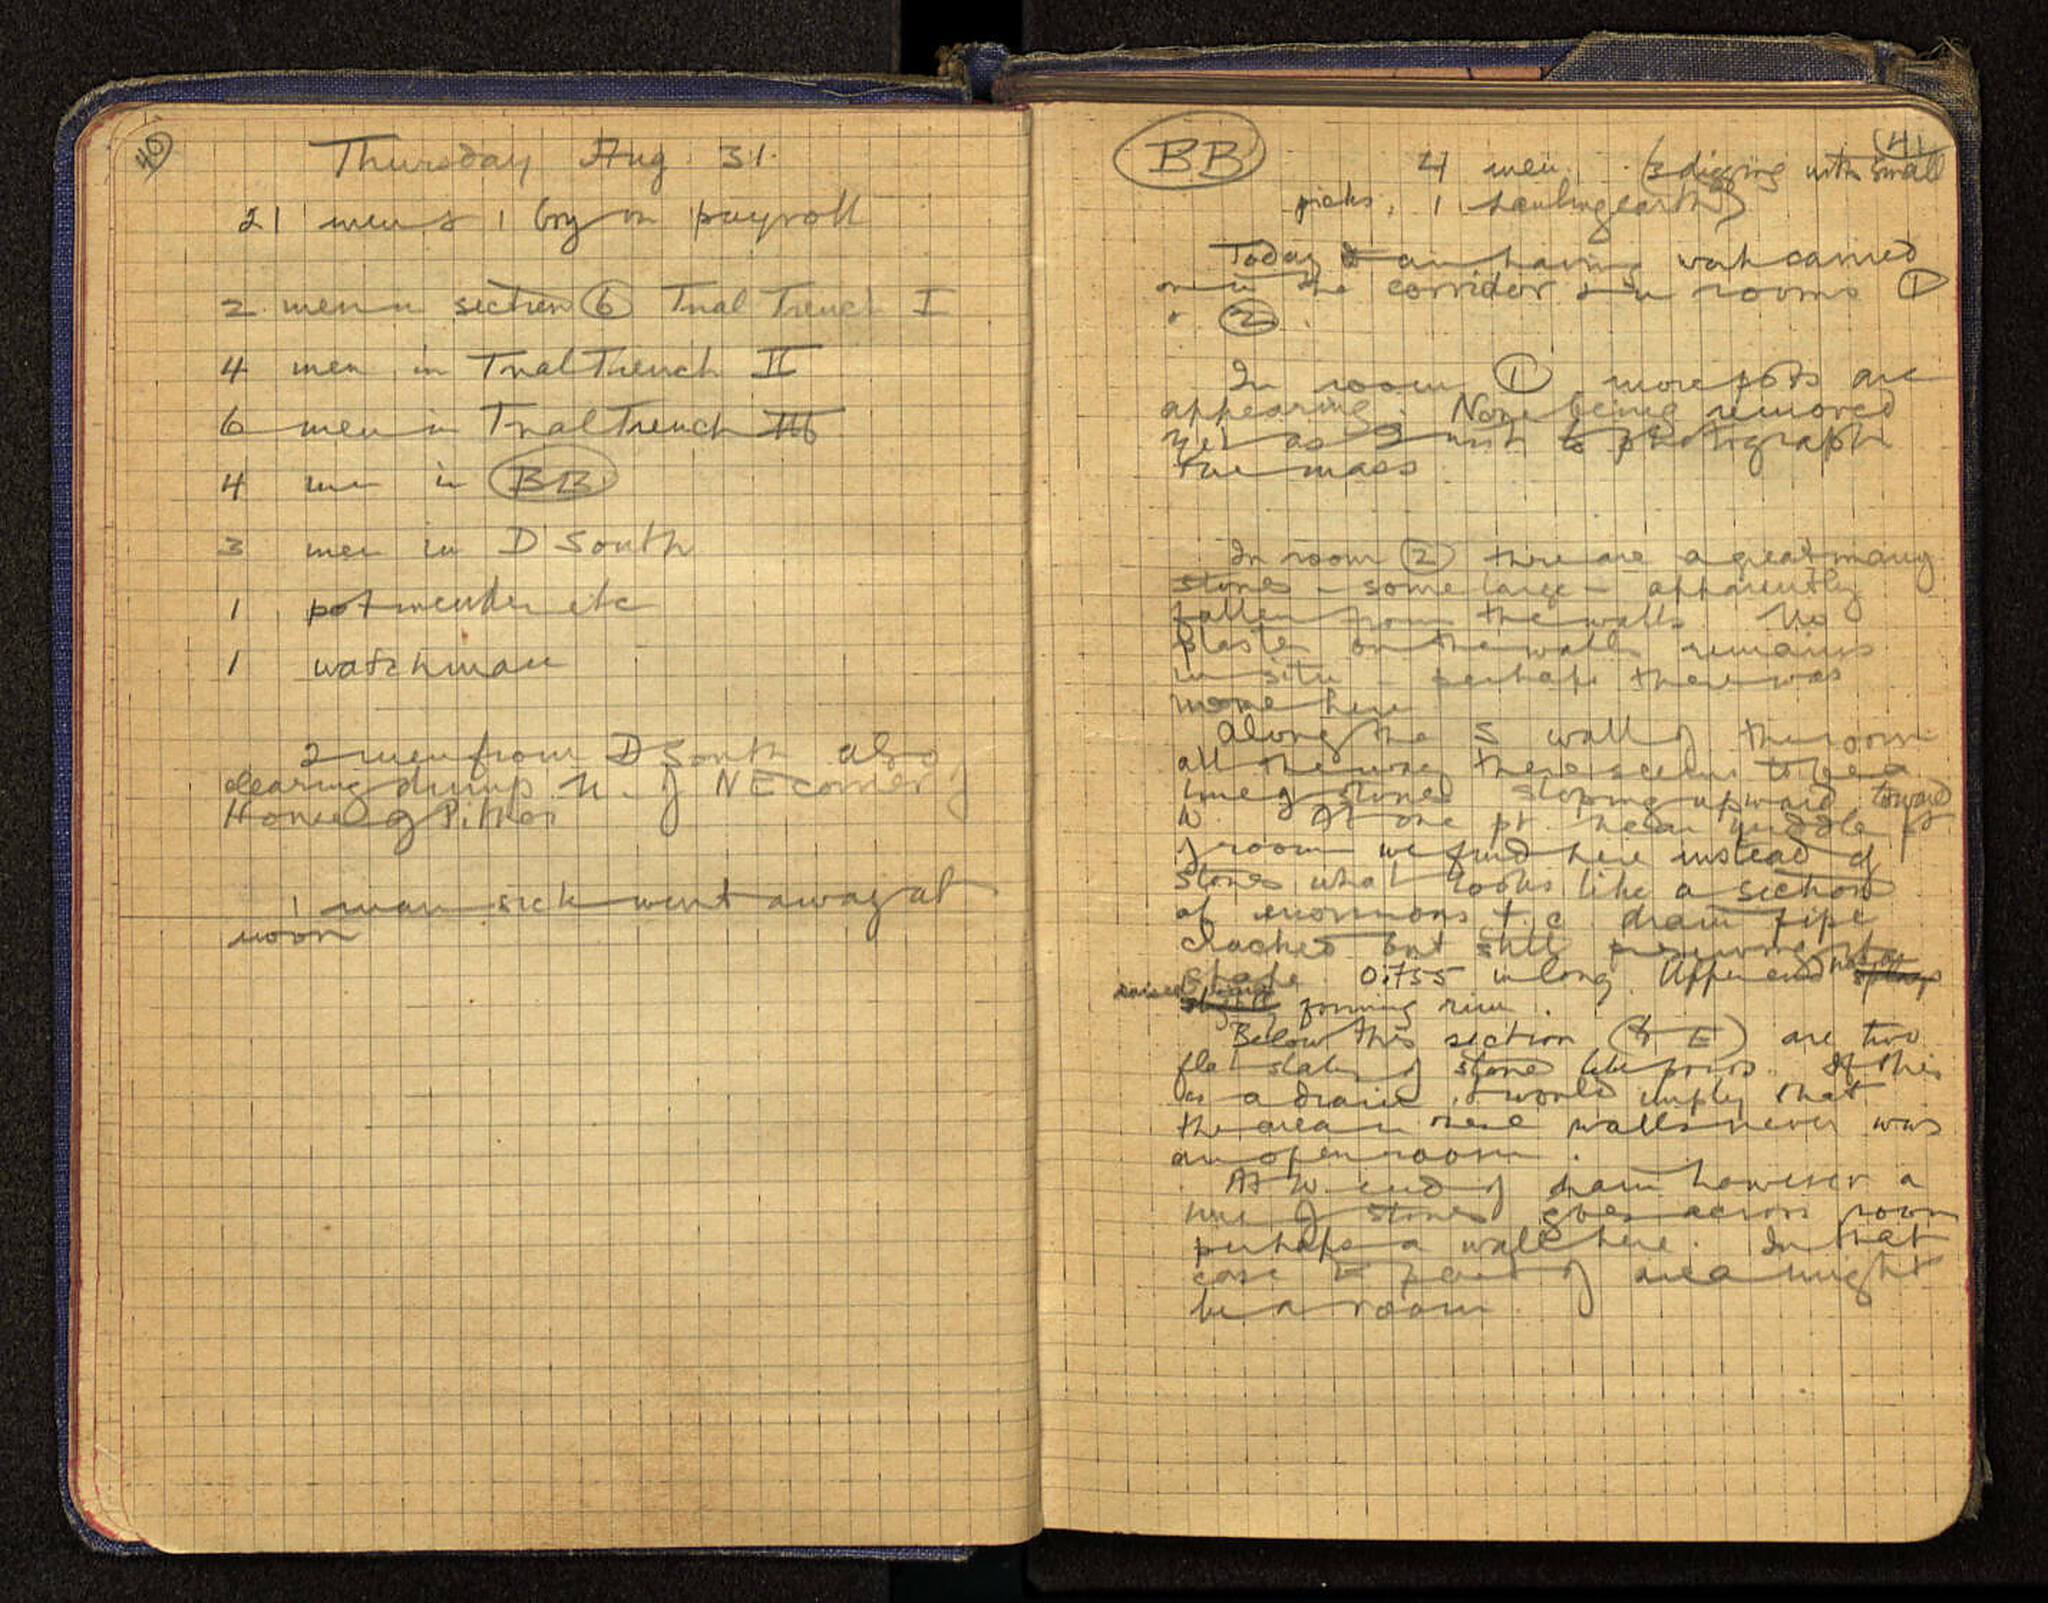 40
Thursday Aug. 31.
21 men & 1 boy on payroll
2 men in section 6 Trial Trench I
4 men in Trial Trench II
6 men in Trial Trench III
4 men in BB
3 men in D South
1 potmender etc
1 watchman
2 men from D South also
clearing dump N. of NE corner of
House of Pithoi
1 man sick went away at
noon
41
BB 4 men (3 digging with small
picks, 1 hauling earth)
Today I am having work carried
on in the corridor & in rooms 1
& 2.
In room 1 more pots are
appearing. None being removed
yet as I wish to photograph
the mass
In room 2 there are a great many
stones - some large - apparently
fallen from the walls. No
plaster on the walls remains
in situ - perhaps there was
none here
Along the S wall of the room
all the way there seems to be a
line of stones sloping upward toward
W. At one pt. near middle
of room we find here instead of
stones what looks like a section
of enormous t.c. drain pipe
cracked but still preserving its
shape 0.755 m long. Upper end
raised forming rim.
Below this section (to E) are two
flat slabs of stone like poros. If this
is a drain it would imply that
the area in these walls never was
an open room.
At W. end of drain however a
line of stones goes across room
perhaps a wall here. In that
case W part of area might
be a room.